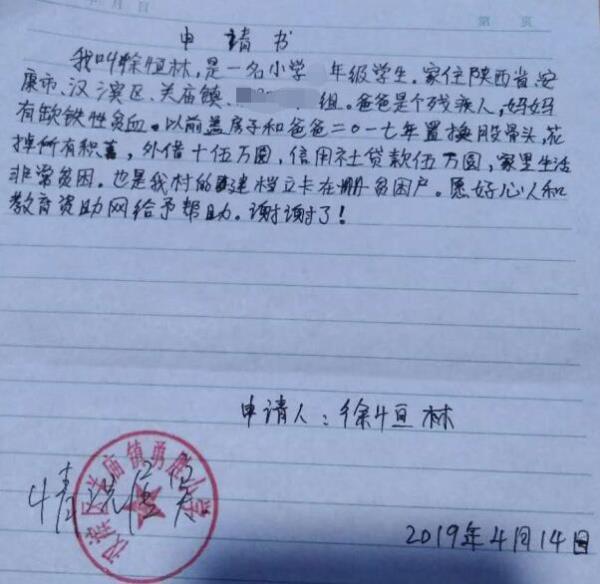 年 月 日
第 页
申请书
我叫徐恒林,是一名小学 年级学生.家住陕西省、安
康市、汉滨区、关庙镇、 组。爸爸是个残疾人,妈妈
有缺铁性贫血。以前盖房子和爸爸二〇一七年置换股骨头,花
掉所有积蓄,外借十伍万圆,信用社贷款伍万圆,家里生活
非常贫困。也是我村的建档立卡在册贫困户。愿好心人和
教育资助网给予帮助。谢谢了!
申请人:徐恒林
情况属实
汉滨区关庙镇勇胜小学
2019年4月14日